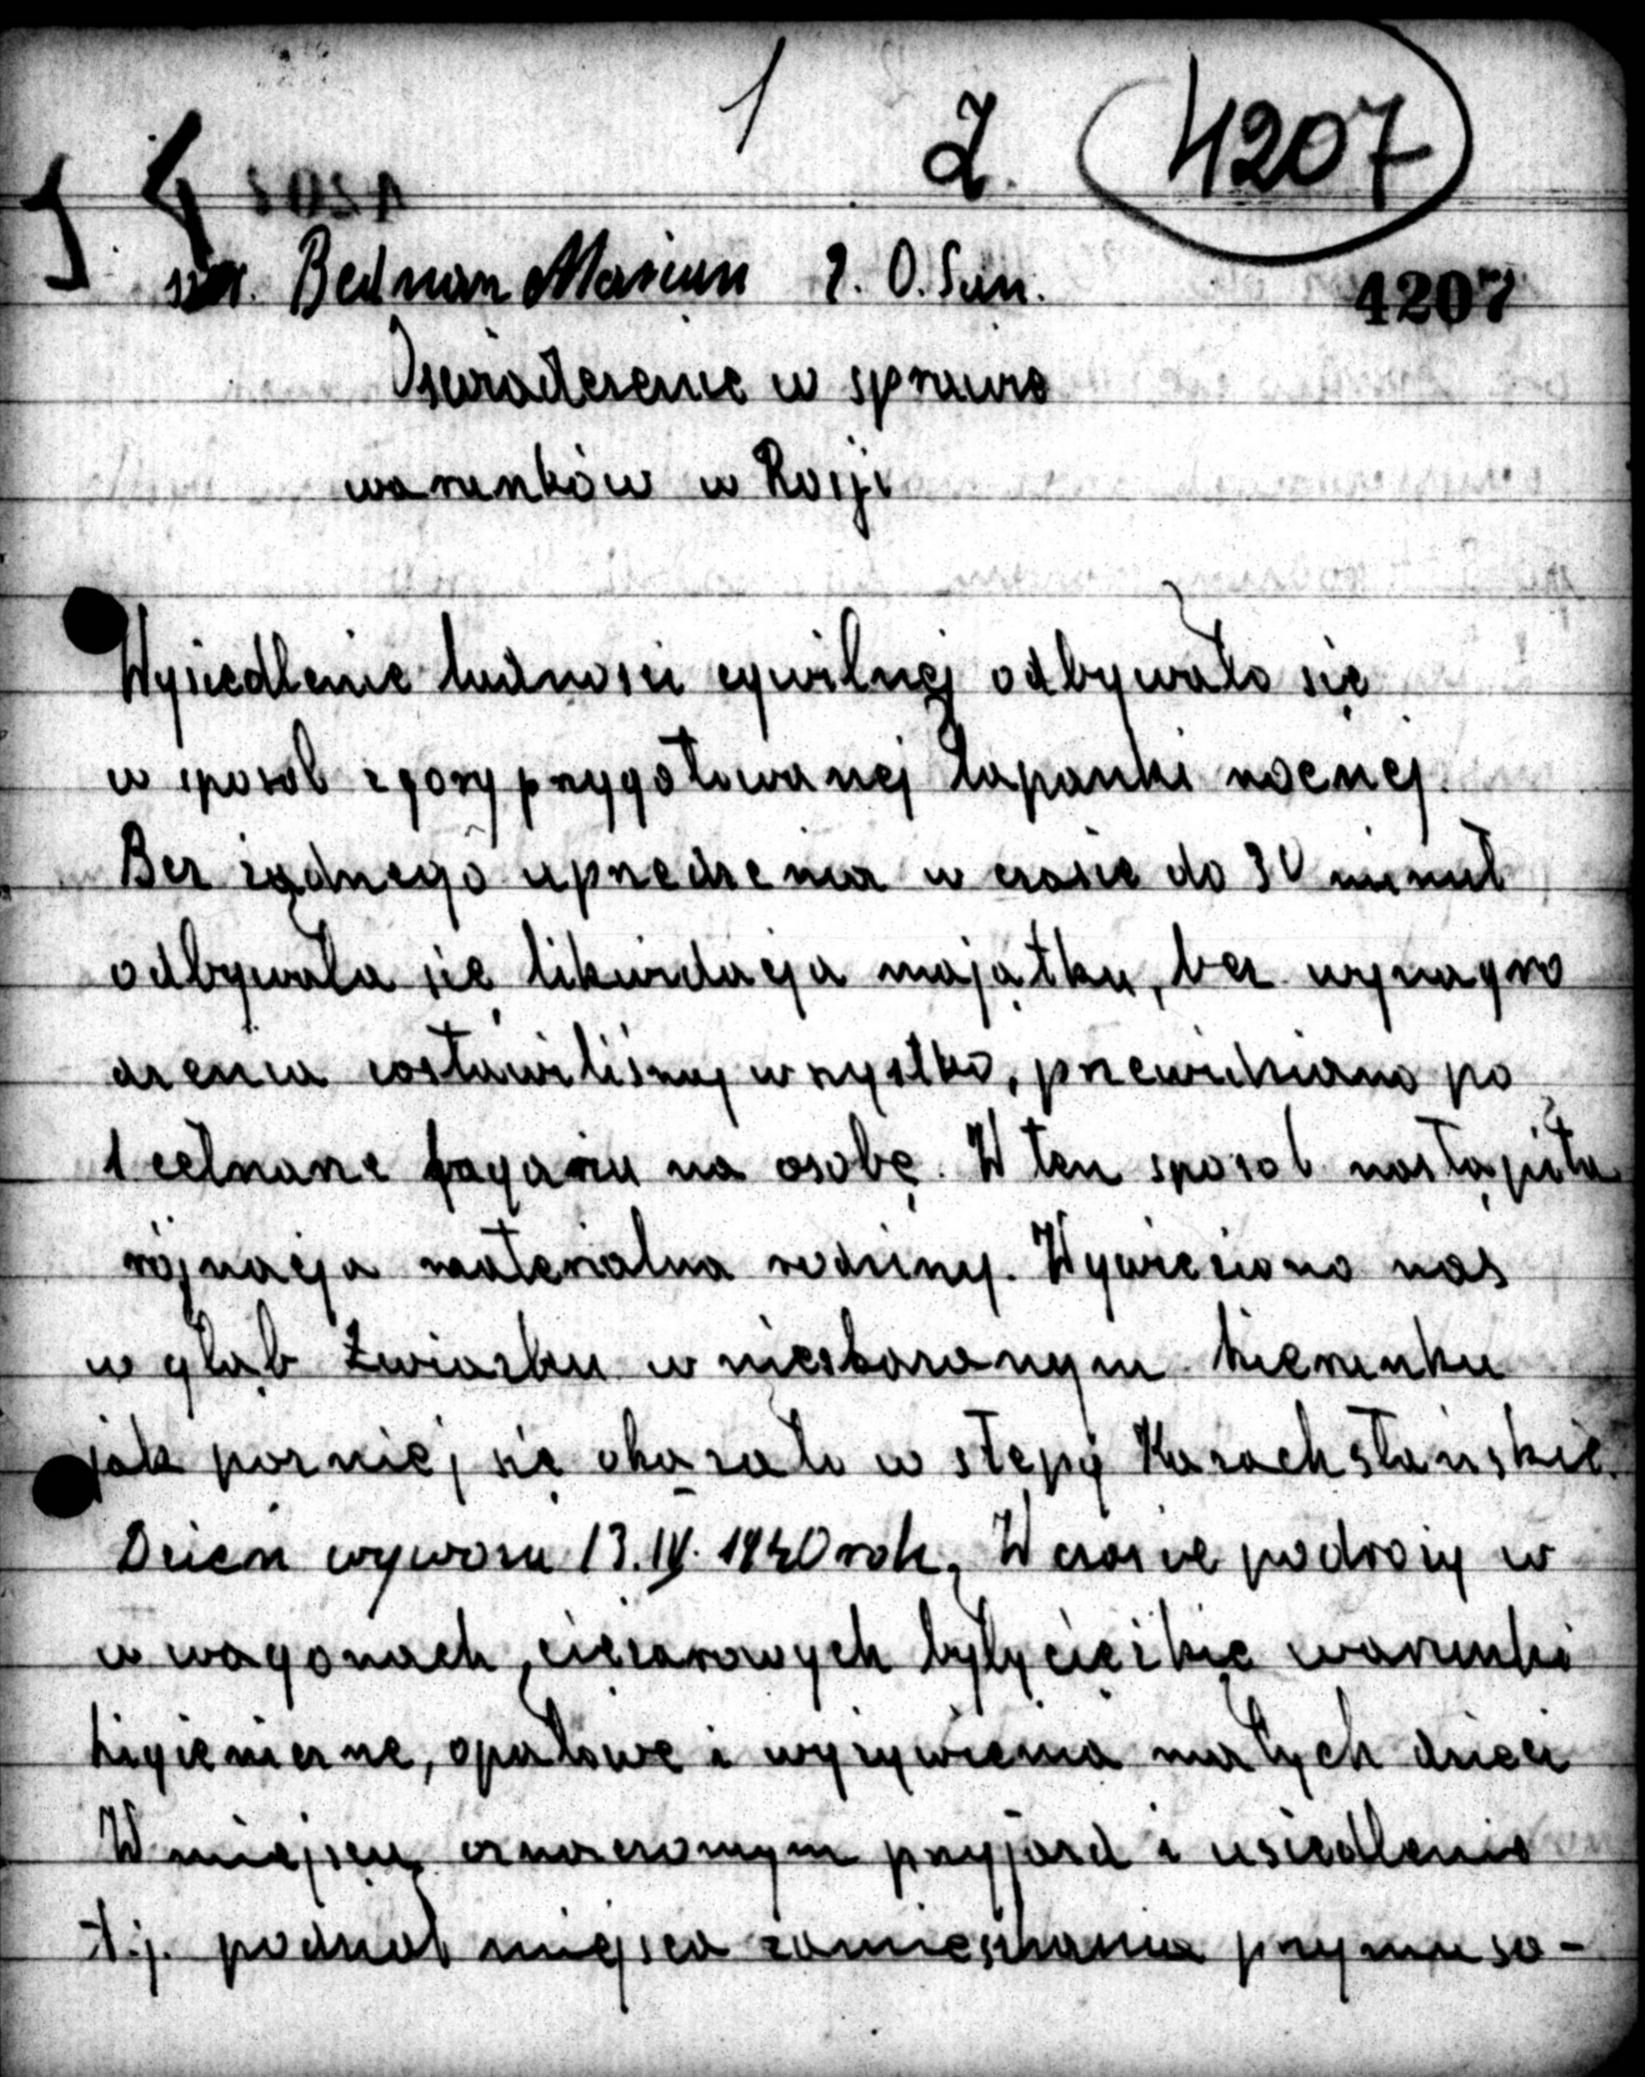 1
2. 4207
szer. Bednarz Marian 2. O. San.
4207
Oswiadczenie w sprawie
warunków w Rosji
Wysiedlenie ludnosci cywilnej odbywało się
w sposob zgory przygotowanej łapanki nocnej.
Bez żadnego uprzedzenia w czasie do 30 minut
odbywała się likwidacja majątku, bez wynagro
dzenia zostawiliśmy wszystko, przewidziano po
1 cetnarze bagażu na osobę. W ten sposob nastąpiła
rójnacja materialna rodziny. Wywieziono nas
w głąb Zwiazku w nieskazanym kierunku
jak pozniej się okazało w stepy Kazachstańskie.
Dzień wywozu 13.IV.1940 rok, W czasie podroży w
w wagonach ciężarowych były ciężkie warunki
higieniczne, opałowe i wyżywienia małych dzieci
W miejscu oznaczonym przyjazd i usiedlenie
t.j. podział miejsca zamieszkania przymuso-